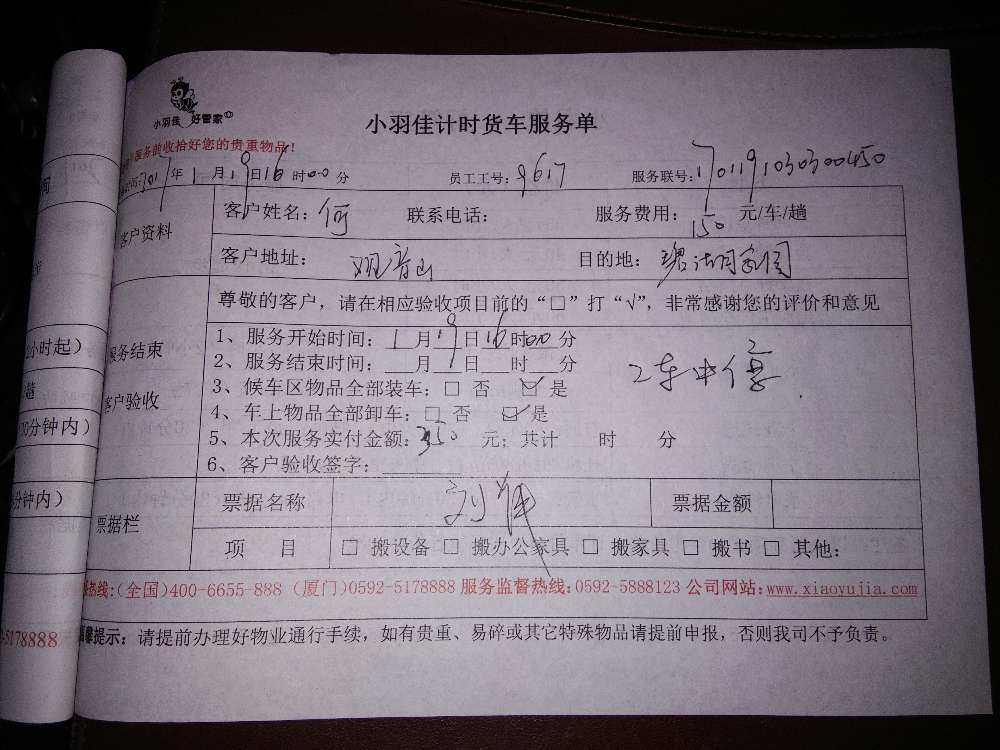 小羽佳 好管家
小羽佳计时货车服务单
服务前收拾好您的贵重物品!
2017年1月19日16时00分 员工工号:9617 服务联号:1701191030300450
客户资料
客户姓名:何 联系电话: 服务费用:150元/车/趟
客户地址:观音山 目的地:
尊敬的客户,请在相应验收项目前的“□”打“√”,非常感谢您的评价和意见
服务结束
客户验收
1、服务开始时间:1月19日16时00分
2、服务结束时间: 月 日 时 分
3、候车区物品全部装车:□ 否 ☑ 是
4、车上物品全部卸车:□ 否 ☑ 是
5、本次服务实付金额:350元;共计 时 分
6、客户验收签字:
票据栏
票据名称 票据金额
项 目 □ 搬设备 □ 搬办公家具 □ 搬家具 □ 搬书 □ 其他:
热线:(全国)400-6655-888 (厦门)0592-5178888 服务监督热线:0592-5888123 公司网站:www.xiaoyujia.com
提示:请提前办理好物业通行手续,如有贵重、易碎或其它特殊物品请提前申报,否则我司不予负责。
小时起)
分钟内)
分钟内)
5178888